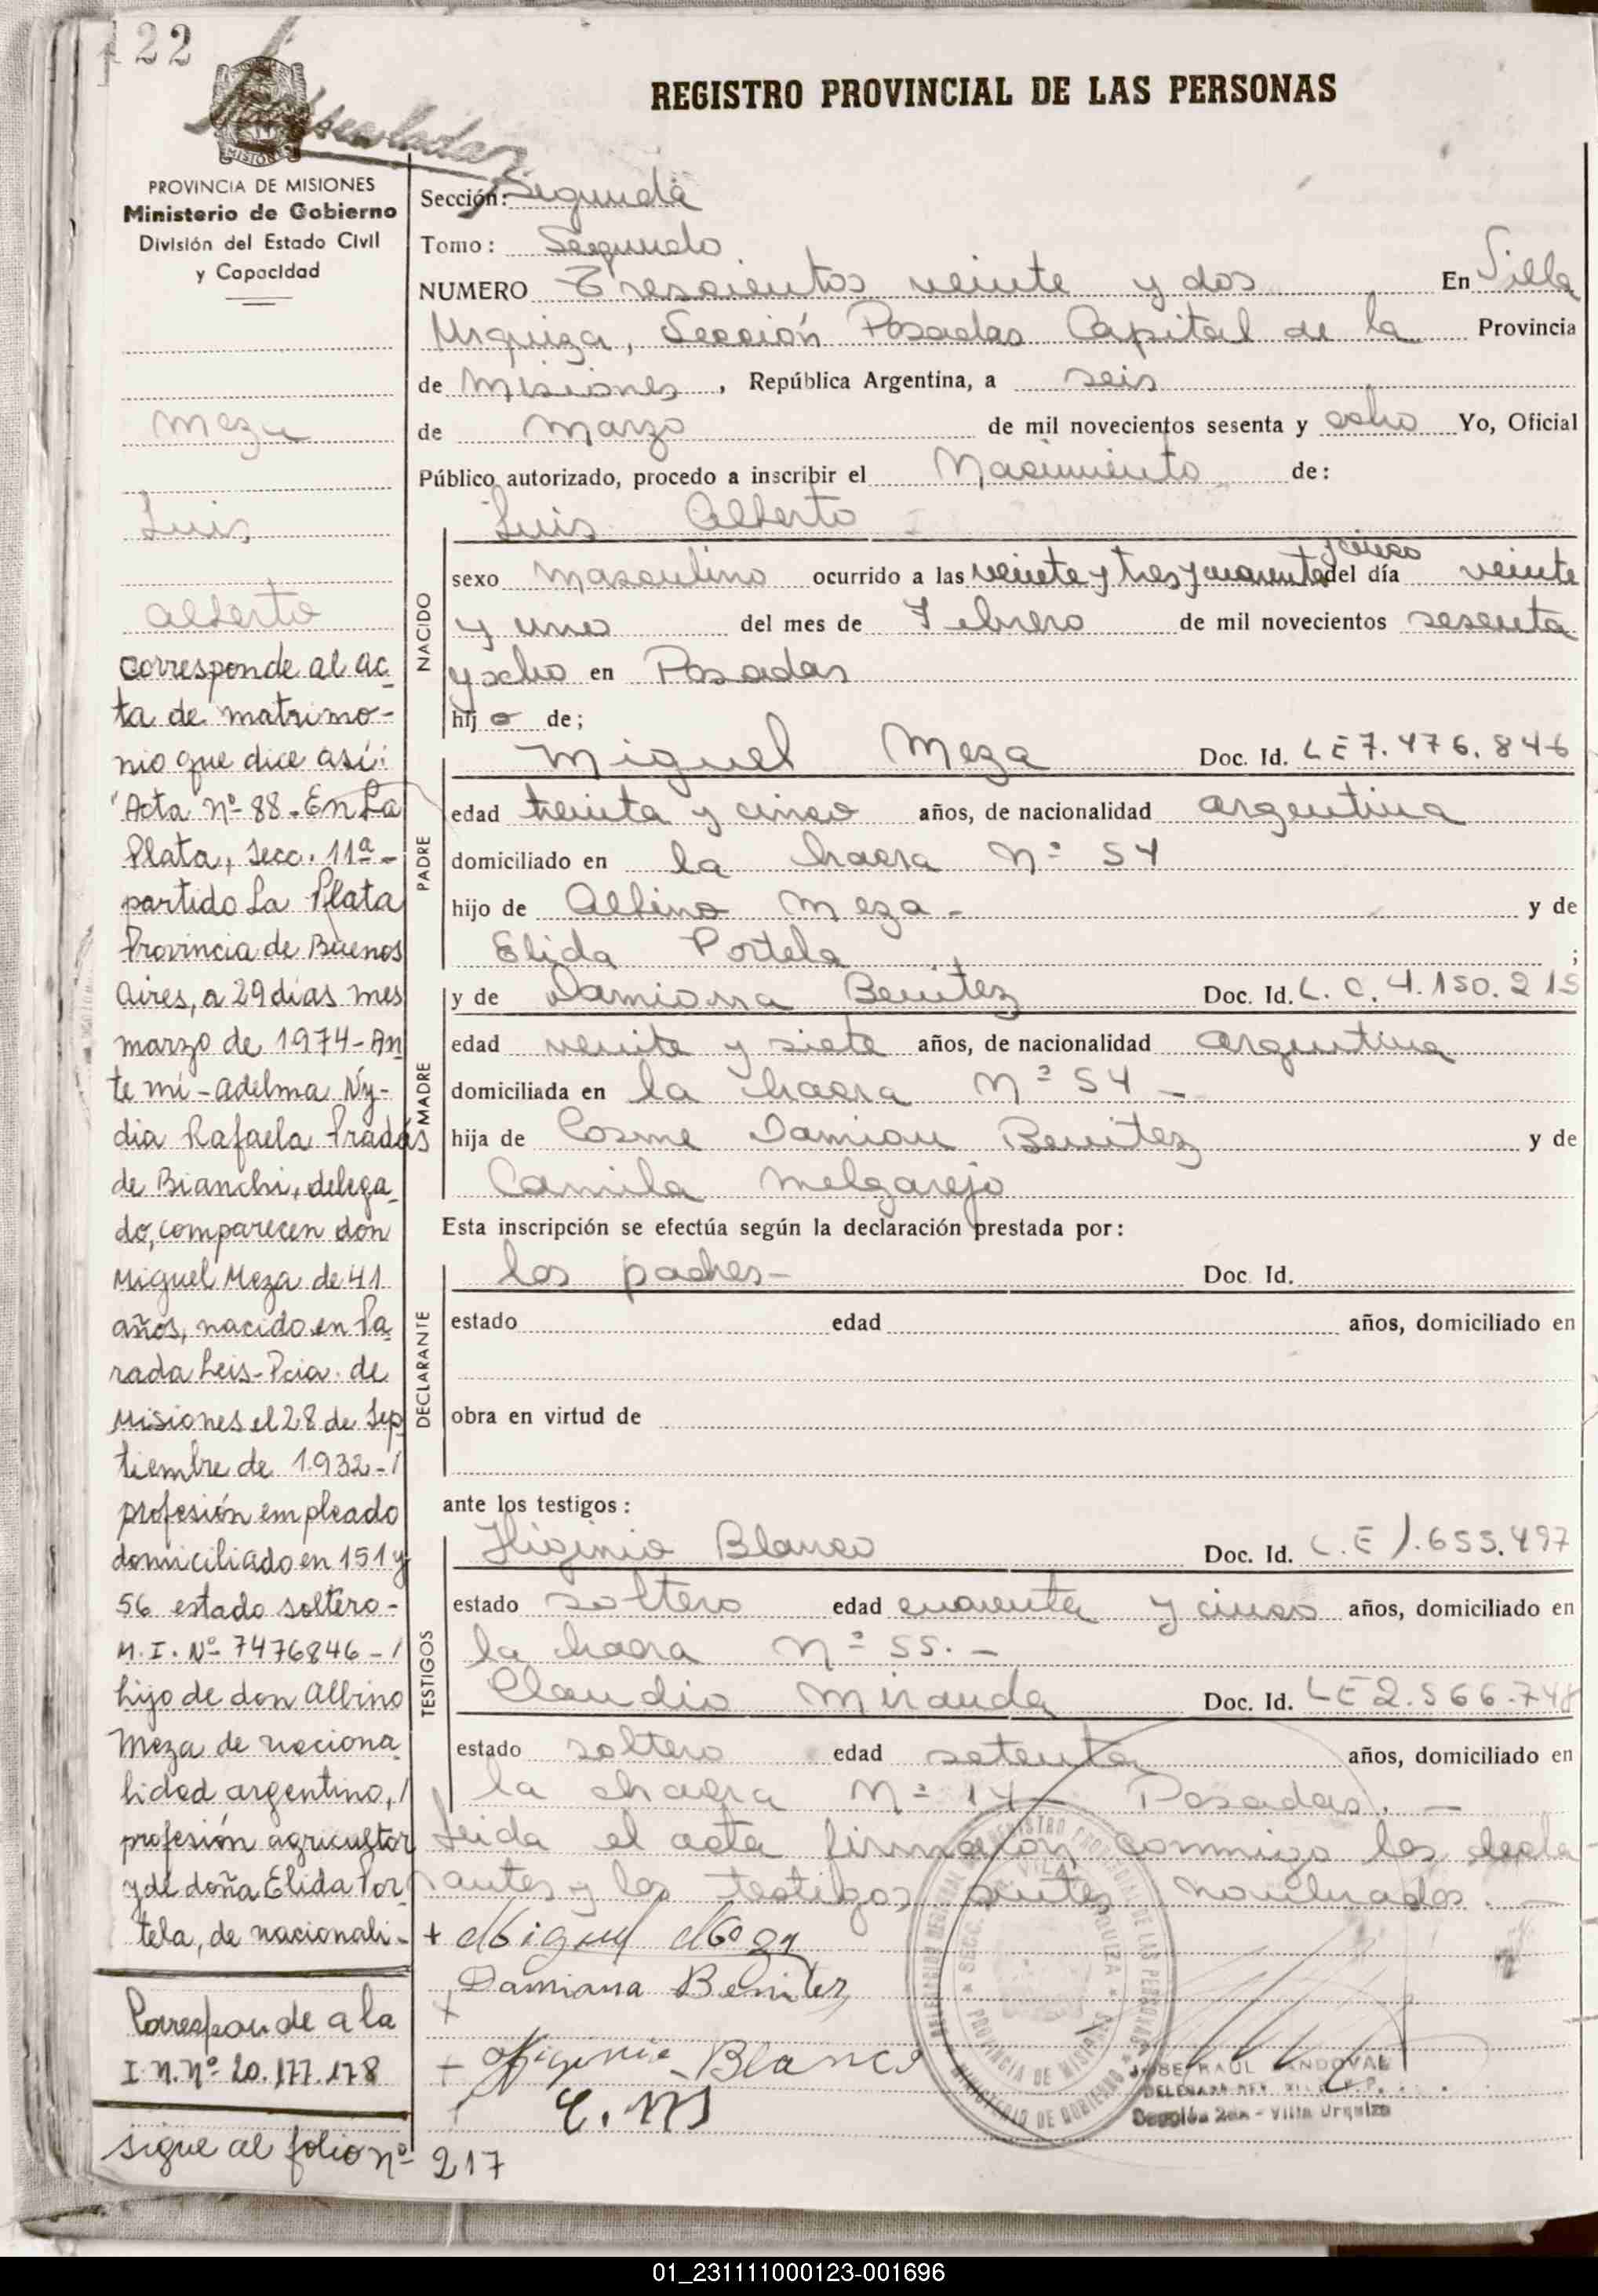 122
REGISTRO PROVINCIAL DE LAS PERSONAS
MISIONES
PROVINCIA DE MISIONES
Ministerio de Gobierno
División del Estado Civil
y Capacidad
Meza
Luis
Alberto
Corresponde al ac-
ta de matrimo-
nio que dice así:
"Acta Nº 88 - En La
Plata, secc. 11ª -
partido La Plata
Provincia de Buenos
Aires, a 29 días mes
marzo de 1974 - An
te mí - Adelma Ny-
dia Rafaela Pradás
de Bianchi, delega-
do, comparecen don
Miguel Meza de 41
años, nacido en Pa-
rada Leis - Pcia. de
Misiones el 28 de Sep
tiembre de 1932 - /
profesión empleado
domiciliado en 151 y
56 estado soltero -
M. I. Nº 7476846 - /
hijo de don Albino
Meza de naciona-
lidad argentino, /
profesión agricultor
y de doña Elida Por
tela, de nacionali -
Corresponde a la
I. N. Nº 20.177.178
sigue al folio nº 217
Sección: Segunda
Tomo: Segundo
NUMERO Trescientos veinte y dos En Villa
Urquiza, Sección Posadas Capital de la Provincia
de Misiones, República Argentina, a seis
de Marzo de mil novecientos sesenta y ocho Yo, Oficial
Público autorizado, procedo a inscribir el Nacimiento de:
NACIDO
Luis Alberto
sexo masculino ocurrido a las veinte y tres y cuarenta y cinco del día veinte
y uno del mes de Febrero de mil novecientos sesenta
y ocho en Posadas
hijo de;
PADRE
Miguel Meza Doc. Id. LE 7.476.846
edad treinta y cinco años, de nacionalidad argentina
domiciliado en la chacra Nº 54
hijo de Albino Meza - y de
Elida Portela ;
MADRE
y de Damiana Benitez Doc. Id. L. C. 4.150.215
edad veinte y siete años, de nacionalidad argentina
domiciliada en la chacra Nº 54 -
hija de Cosme Damian Benitez y de
Camila Melgarejo
Esta inscripción se efectúa según la declaración prestada por:
DECLARANTE
los padres - Doc. Id.
estado edad años, domiciliado en
obra en virtud de
ante los testigos:
TESTIGOS
Higinio Blanco Doc. Id. L.E 1.655.497
estado soltero edad cuarenta y cinco años, domiciliado en
la chacra Nº 55. -
Claudio Miranda Doc. Id. LE 2.566.748
estado soltero edad setenta años, domiciliado en
la chacra Nº 14 - Posadas. -
Leida el acta firmaron conmigo los decla-
rantes y los testigos antes nombrados. -
+ Miguel Meza
+ Damiana Benitez
+ Higinio Blanco
C. M
SECC. VILLA URQUIZA * PROVINCIA DE MISIONES *
MINISTERIO DE GOBIERNO
JOSE RAUL SANDOVAL
Sección 2da - Villa Urquiza
01_231111000123-001696